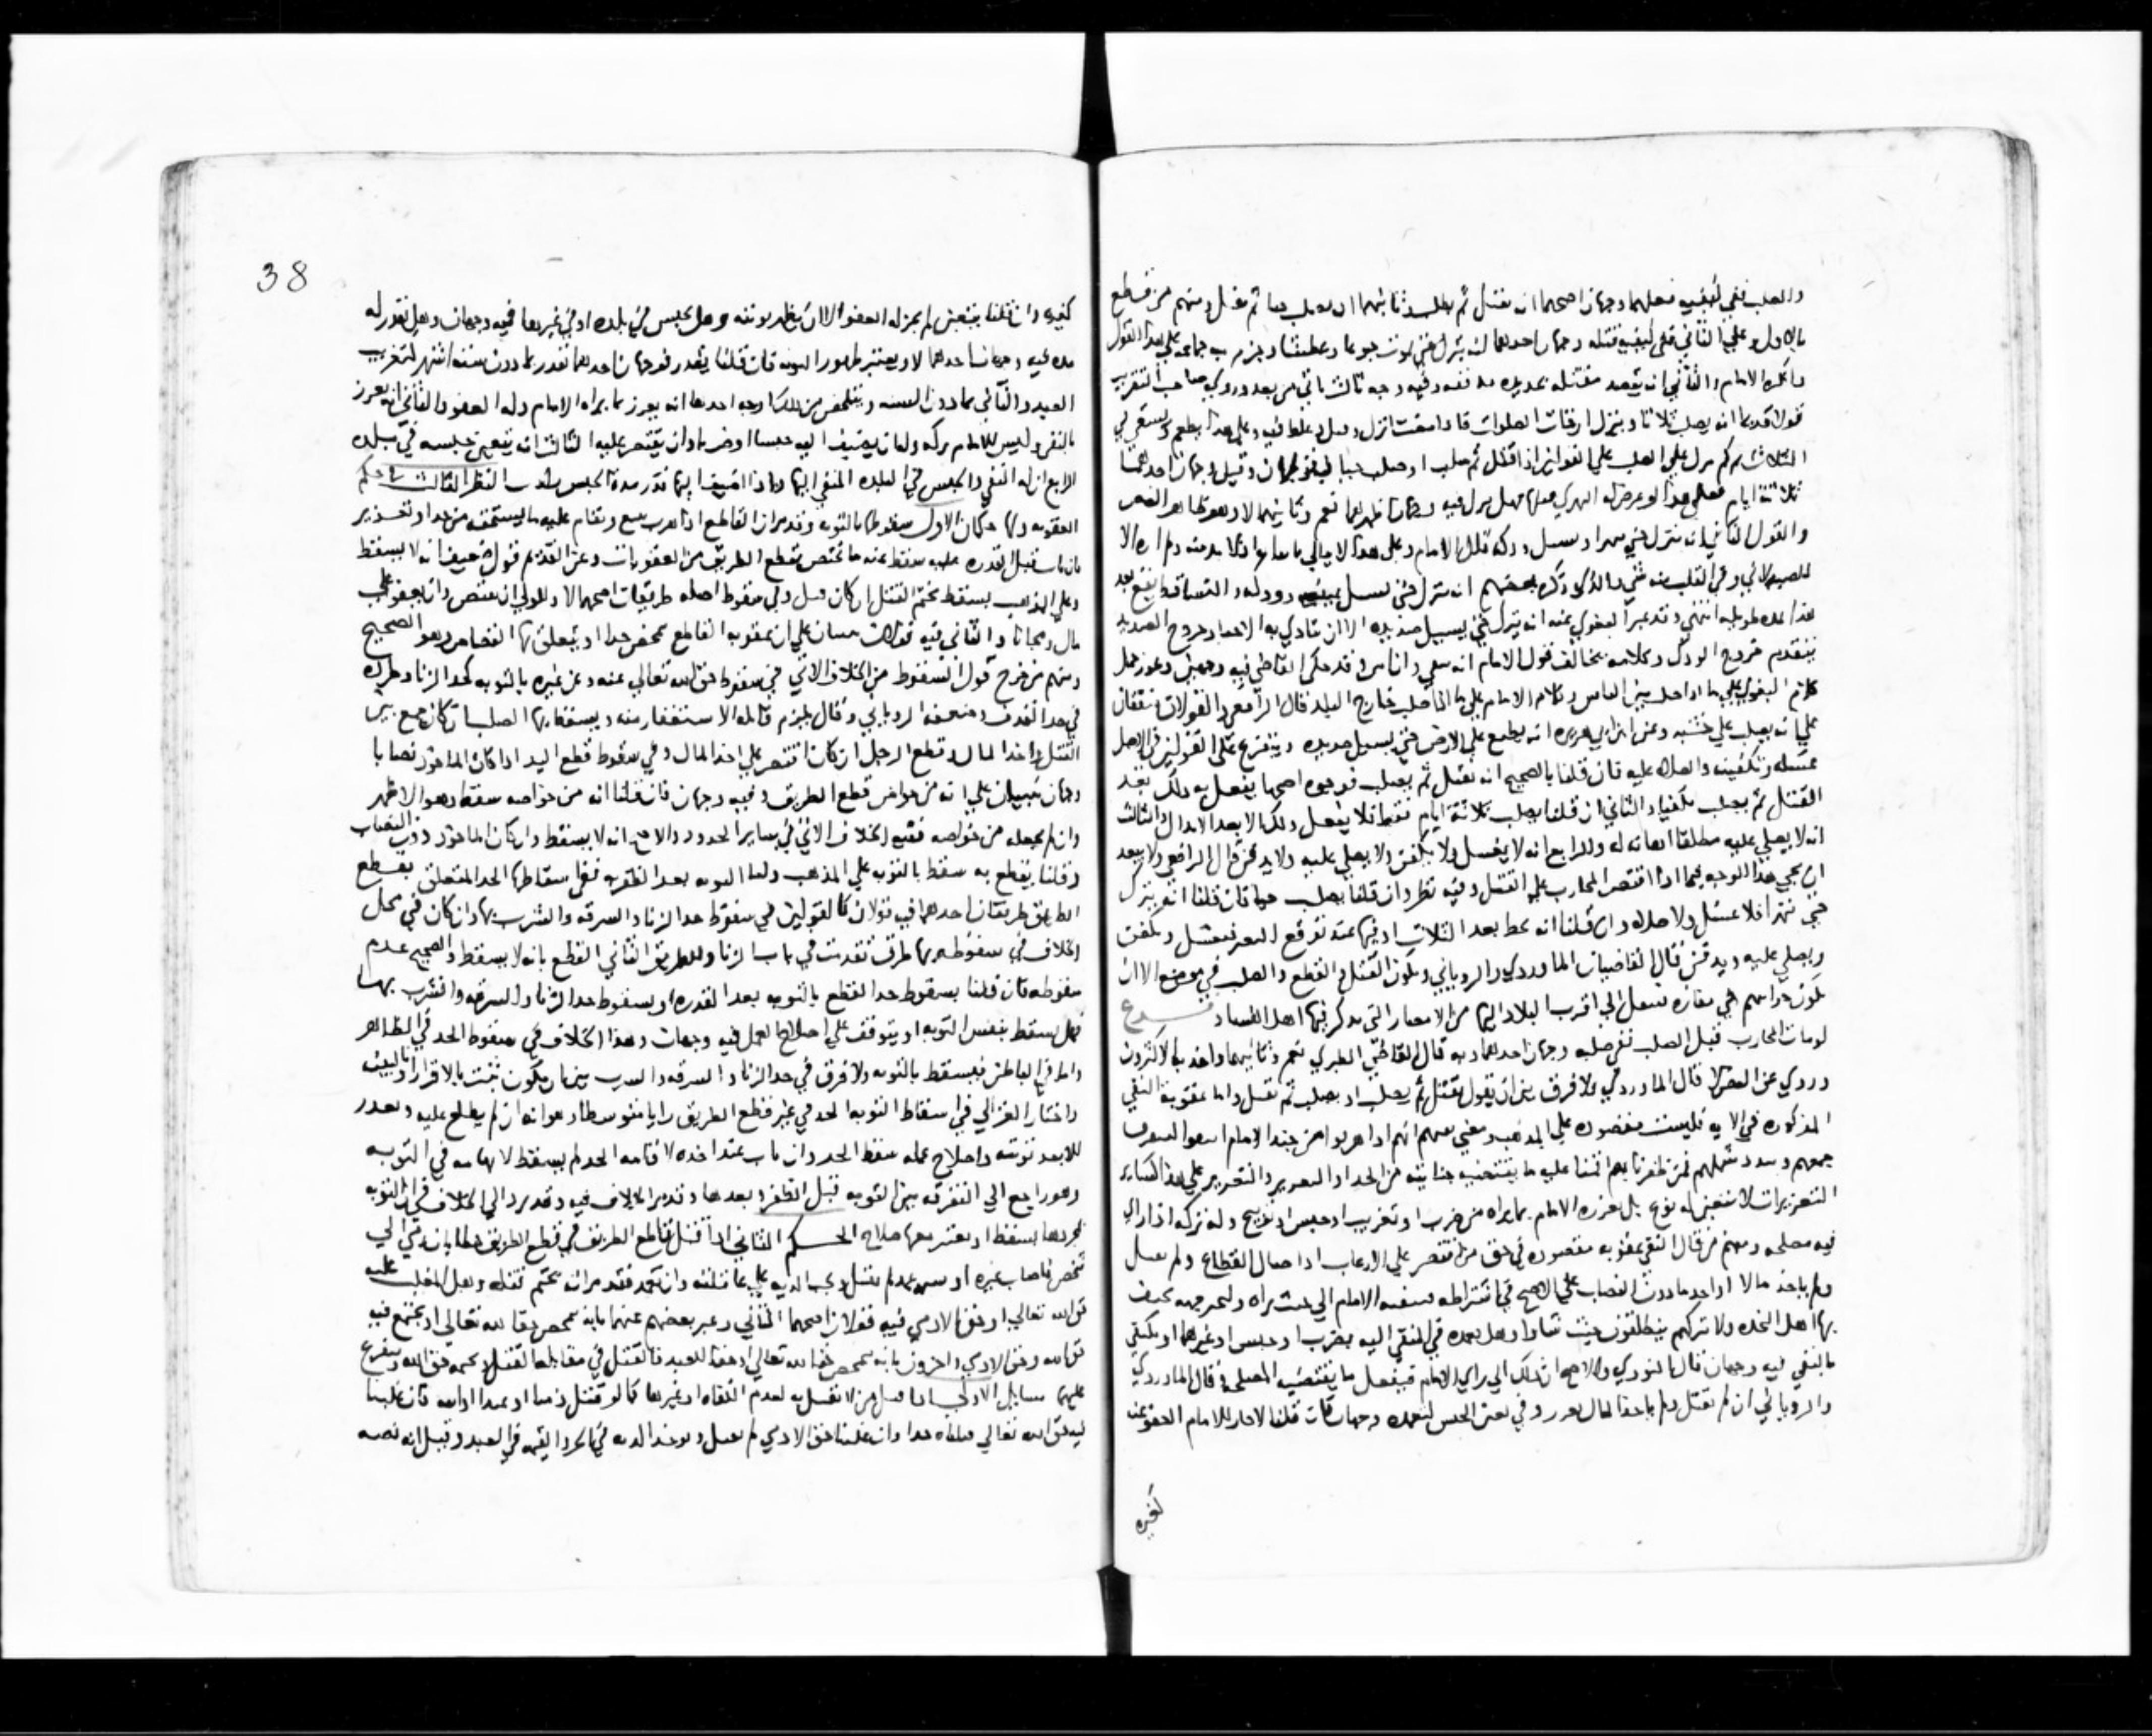 والصلب ففي كيفيه فعلهما وجهان اصحهما ان يقتل ثم يصلب وثانيهما ان يصلب حيا ثم يقتل ومنهم من قطع
بالاول وعلي الثاني ففي كيفيه قتله وجهان احدهما انه يترك حتي يموت جوعا وعطشا وجزم به جماعه علي هذا القول
وانكره الامام والثاني انه يقصد مقتله بحديده مذففه وفيه وجه ثالث ياتي من بعد وروي صاحب التقريب
قولا قديما انه يصلب ثلاثا وينزل اوقات الصلوات فاذا انزل وعلي هذا يطعم ويسقي في
الثلاث ثم كم يترك علي الصلب علي القولين اذا قتل ثم صلب او صلب حيا قولان وقيل وجهان احدهما
ثلاثة ايام فعلي هذا لو فهل ينزل فيه وجهان اظهرهما نعم وثانيهما لا وهو ظاهر النص
والقول الثاني انه يترك حتي يسيل ودكه قال الامام وعلي هذا لا يبالي
للصيدلاني وفي القلب منه شي والذي ذكره بعضهم ان يترك حتي يسيل ودكه والتساقط يقع بعد
مده طويله انتهي وقد عبر البغوي عنه انه يترك حتي يسيل صديده الا ان يتاذي به الاحياء وخروج الصديد
يتقدم خروج الودك وكلامه يخالف قول الامام
كلام البغوي علي ما اذا صلب بين الناس وكلام الامام علي ما اذا صلب خارج البلد قال الرافعي والقولان متفقان
علي انه يصلب علي خشبه وعن ابن ابي هريره انه يطرح علي الارض حتي يسيل صديده ويتفرع علي القولين في الاصل
غسله وتكفينه والصلاه عليه فان قلنا بالصحيح انه يقتل ثم يصلب فوجوه اصحها يفعل به ذلك بعد
القتل ثم يصلب مكفنا والثاني ان قلنا يصلب ثلاثة ايام فقط فلا يفعل ذلك الا بعد الانزال والثالث
انه لا يصلي عليه مطلقا اهانه له والرابع انه لا يغسل ولا يكفن ولا يصلي عليه ولا يدفن قال الرافعي ولا يبعد
ان يجي هذا الوجه فيما اذا اقتصر المحارب علي القتل وفيه نظر وان قلنا يصلب حيا فان قلنا انه يترك
حتي يتهرا فلا غسل ولا صلاه وان قلنا انه يحط بعد الثلاث او فيها عند توقع التغير فيغسل ويكفن
ويصلي عليه ويدفن قال القاضيان الماوردي والروياني ويكون القتل والقطع والصلب في موضع الا ان
يكون في مفازه فينقل الي اقرب البلاد اليها من الامصار التي يذكر فيها اهل الفساد فــرع
لو مات المحارب قبل الصلب ففي صلبه وجهان احدهما وبه قال القاضي الطبري نعم وثانيهما واخذ به الاكثرون
وروي عن النص لا قال الماوردي ولا فرق بين ان يقول يقتل ثم يصلب او يصلب ثم يقتل واما عقوبة النفي
المذكوره في الايه فليست مقصوده علي المذهب ومعني نفيهم انهم اذا هربوا من جند الامام
جمعهم شملهم فمن ظفرنا به اقمنا عليه ما يقتضيه جنايته من الحد او التعزير والتعزير علي هذا كساير
التعزيرات لا يتعين له نوع بل يعزره الامام بما يراه من ضرب او تغريب او حبس او توبيخ وله تركه اذا راي
فيه مصلحه ومنهم من قال النفي عقوبه مقصوده في حق من اقتصر علي الارعاب اذا القطاع ولم يقتل
ولم ياخذ مالا او اخذ ما دون النصاب علي الاصح في اشتراطه فينفيه الامام الي حيث يراه
بها اهل النجده ولا تركهم ينطلقون حيث شاوا وهل يعزره في المنفي اليه بضرب او حبس او غيرهما او يكتفي
بالنفي فيه وجهان قال النووي والاصح ان ذلك الي راي الامام فيفعل ما يقتضيه المصلحه وقال الماوردي
والروياني ان لم يقتل ولم ياخذ المال يعزر وفي تعين الحبس لتعزيره وجهان فان قلنا لا جاز للامام العفو عنه
كغيره
38
كغيره وان قلنا يتعين لم يجز له العفو الا ان يظهر توبته وهل يحبس في بلده او في غيرها فيه وجهان وهل يتقدر له
مده فيه وجهان احدهما لا ويعتبر ظهور التوبه فان قلنا يتقدر فوجهان احدهما تقدر بما دون سته اشهر لتغريب
العبد والثاني بما دون السنه ويتلخص من ذلك اوجه احدها انه يعزر بما يراه الامام وله العفو والثاني انه يعزر
بالنفي وليس للامام تركه وله ان يضيف اليه حبسا او ضربا وان يقتصر عليه الثالث انه يتعين حبسه في بلده
الرابع ان له النفي والحبس في البلده المنفي اليها واذا اضيف اليها تقدر مدة الحبس النظر الثالث في حكم
العقوبه ولها حكمان الاول سقوطها بالتوبه وقد مر ان القاطع اذا هرب يتبع ويقام عليه ما يستحقه من حد او تعزير
فان تاب قبل القدره عليه سقط عنه ما يختص بقطع الطريق من العقوبات وعن القديم قول ضعيف انه لا يسقط
وعلي المذهب يسقط تحتم القتل ان كان قتل وفي سقوط اصله طريقان اصحهما لا وللولي ان يقتص وان يعفو علي
مال ومجانا والثاني فيه قولان مبنيان علي ان عقوبه القاطع تمحض حدا او يتعلق بها القصاص وهو الصحيح
ومنهم من خرج قول السقوط من الخلاف الاتي في سقوط حق الله تعالي عنه وعن غيره بالتوبه كحد الزنا وطرده
في حد القذف وضعفه الروياني وقال يلزم قائله الاستغفار منه ويسقط بها الصلب ان كان جمع بين
القتل واخذ المال وقطع الرجل ان كان اقتصر علي اخذ المال وفي سقوط قطع اليد اذا كان الماخوذ نصابا
وجهان مبنيان علي انه من خواص قطع الطريق وفيه وجهان فان قلنا انه من خواصه سقط وهو الاظهر
وان لم نجعله من خواصه ففيه الخلاف الاتي في ساير الحدود والاصح انه لا يسقط وان كان الماخوذ دون النصاب
وقلنا يقطع به سقط بالتوبه علي المذهب واما التوبه بعد الظفر به ففي اسقاطها الحد المتعلق بقطع
الطريق طريقان احدهما فيه قولان كالقولين في سقوط حد الزنا والسرقه والشرب بها وان كان في محل
الخلاف في سقوطه بها طرق تقدمت في باب الزنا والطريق الثاني القطع بانه لا يسقط والصحيح عدم
سقوطه فان قلنا بسقوط حد القطع بالتوبه بعد القدره او بسقوط حد الزنا والسرقه والشرب بها
فهل يسقط بنفس التوبه او يتوقف علي اصلاح العمل فيه وجهان وهذا الخلاف في سقوط الحد في الظاهر
واما في الباطن فيسقط بالتوبه ولا فرق في حد الزنا والسرقه والشرب بين ان يكون ثبت بالاقرار او بالبينه
واختار الغزالي في اسقاط التوبه الحد في غير قطع الطريق رايا متوسطا وهو انه ان لم يطلع عليه
توبته واصلاح عمله سقط الحد وان تاب عند اخذه لاقامه الحد لم يسقط لاتهامه في التوبه
وهو راجع الي التفرقه بين التوبه قبل الظفر وبعدها وقد مر الخلاف فيه وقد يرد الي الخلاف في ان التوبه
بمجردها يسقط او يعتبر معها صلاح الحــكم الثاني اذا قتل قاطع الطريق في قطع الطريق خطا بان رمي الي
شخص فاصاب غيره او شبه عمد لم يقتل وتجب الديه علي عاقلته وان تعمد فقد مر انه يتحتم قتله وهل المغلب عليه
حق الله تعالي او حق الادمي فيه قولان اصحهما الثاني وعبر بعضهم عنهما بانه يتمحض حقا لله تعالي او يجتمع فيه
حق الله وحق الادمي واخرون بانه يتمحض حقا لله تعالي او حقا للعبد فالقتل في مقابلة القتل وتحتمه حق الله ويتفرع
عليهما مسايل الاولي اذا قتل من لا يقتل به لعدم التكافو او غيرها كما لو قتل ذميا او عبدا او ابنه فان غلبنا
فيه حق الله تعالي قتلناه حدا وان غلبنا حق الادمي لم يقتل ويوخذ الديه في الحر والقيمه في العبد وقيل انه نصه